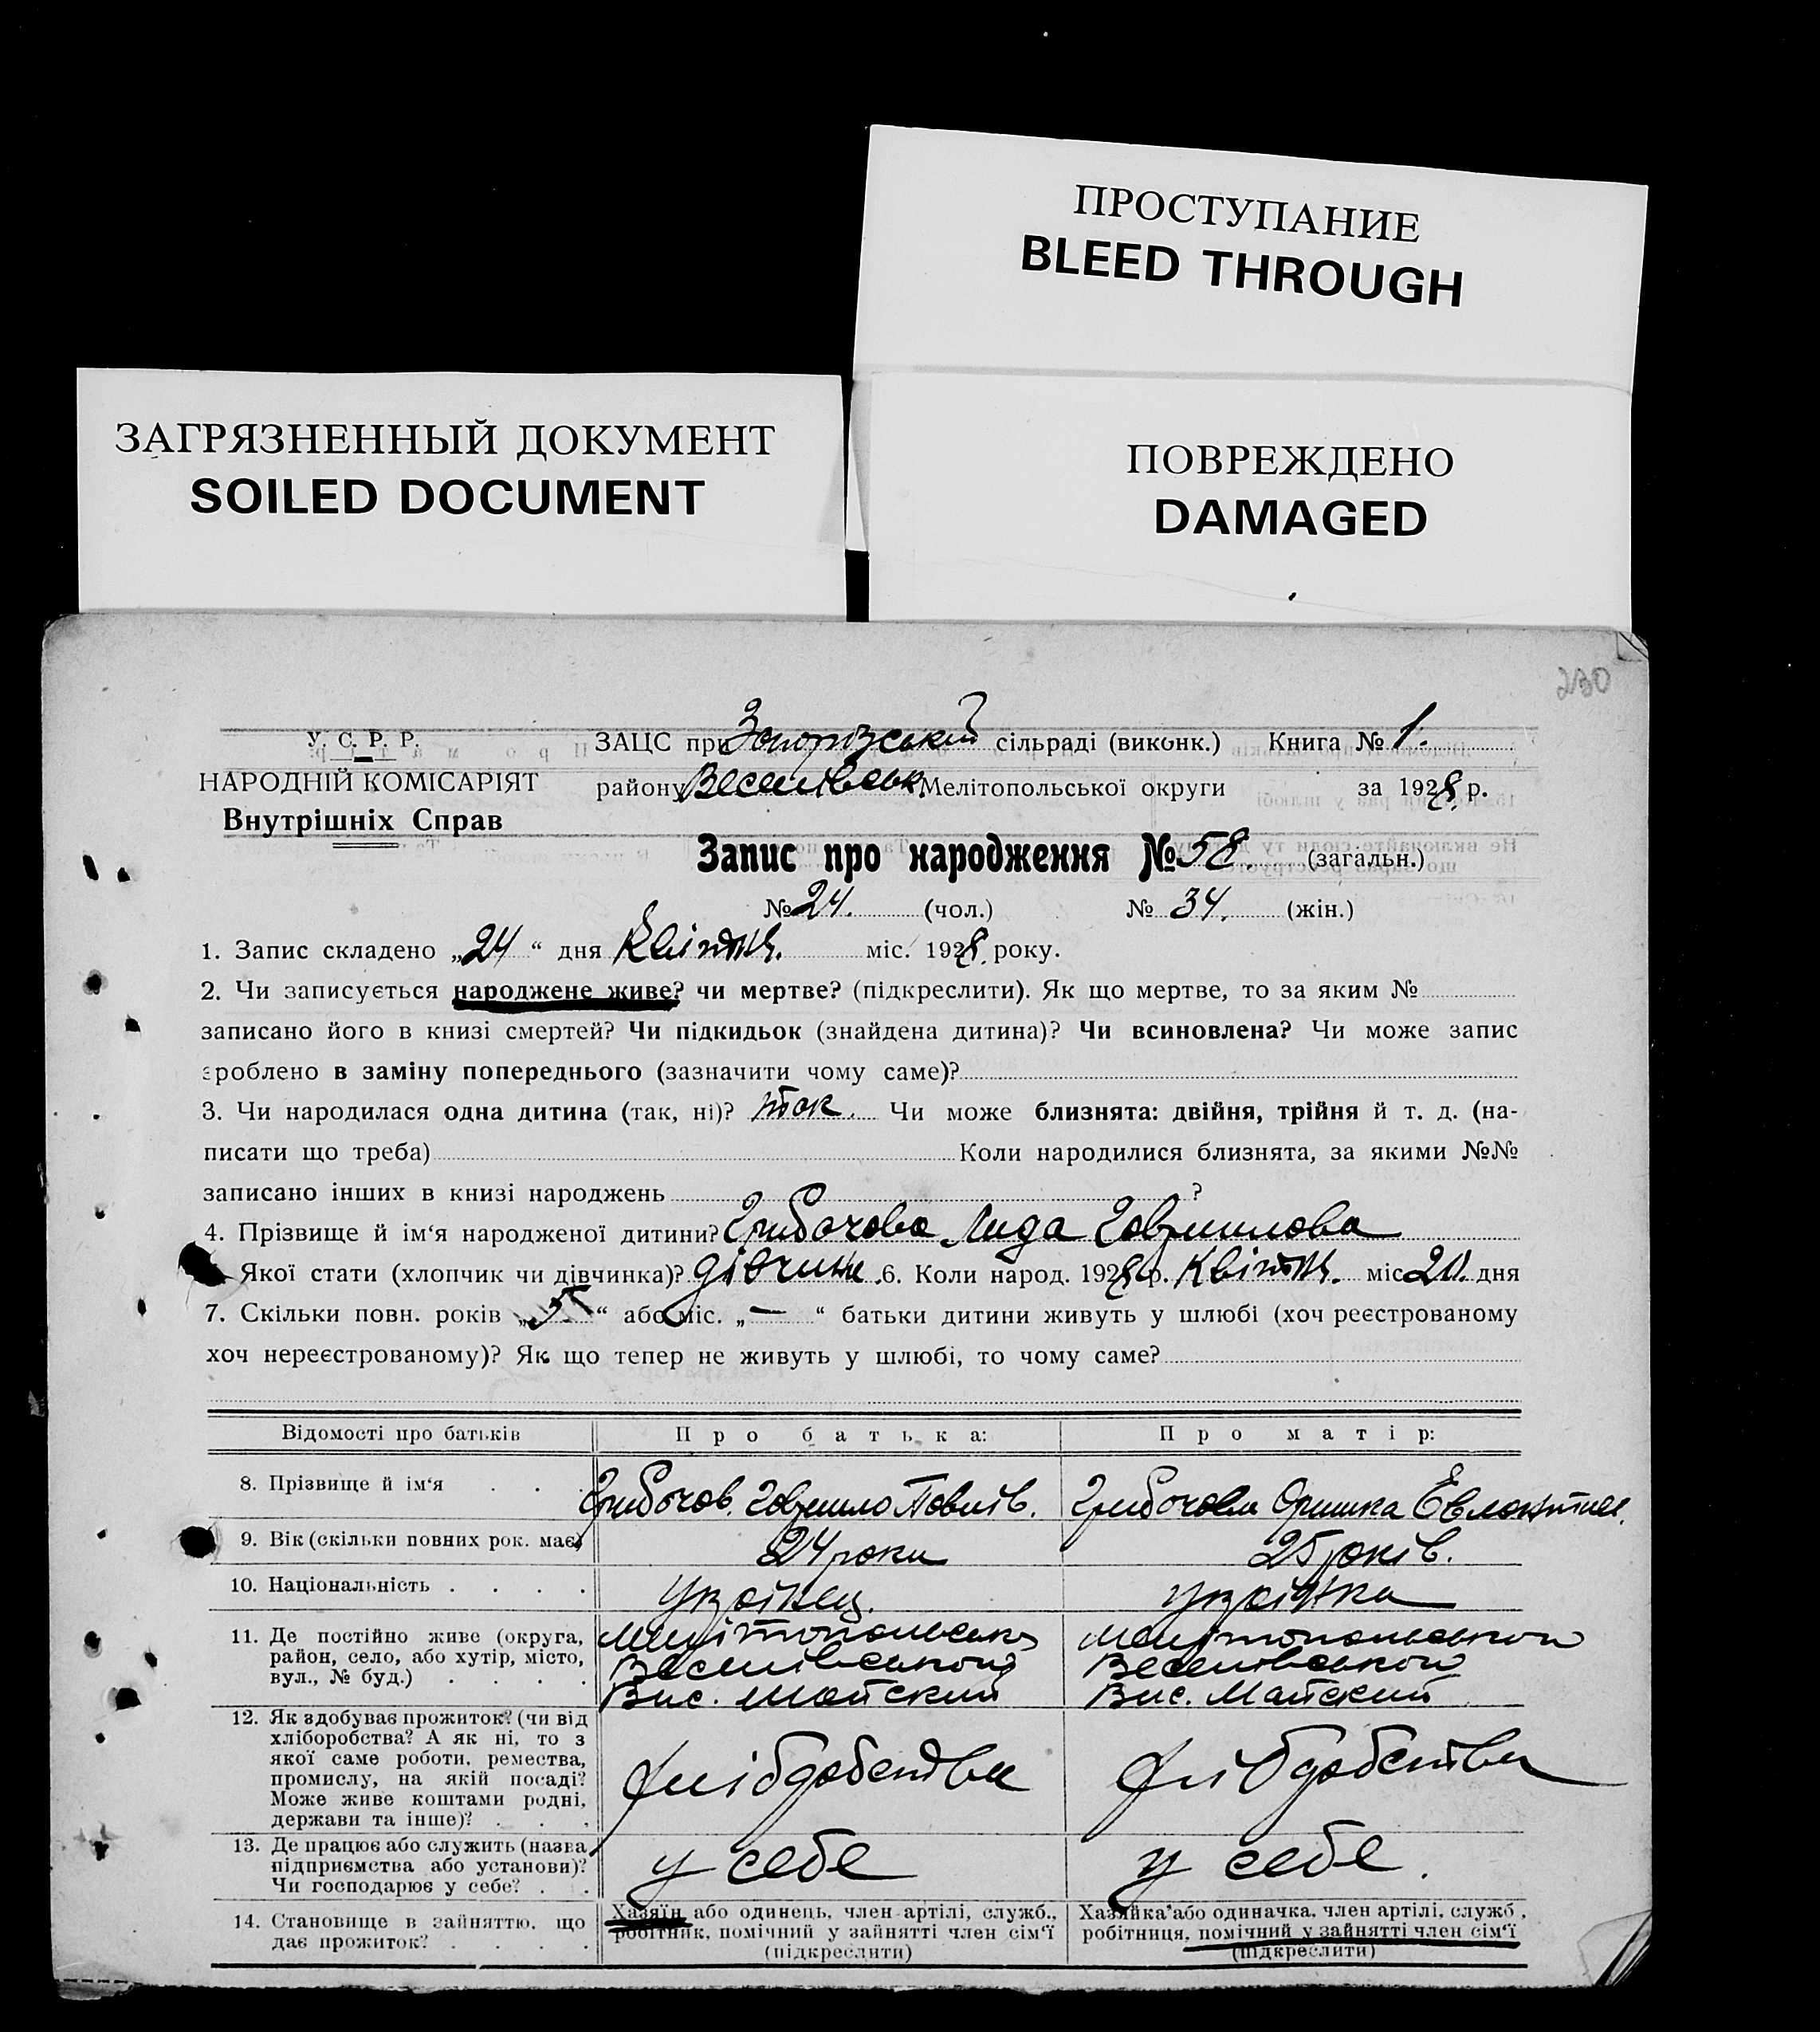 ПРОСТУПАНИЕ
BLEED THROUGH
ЗАГРЯЗНЕННЫЙ ДОКУМЕНТ
SOILED DOCUMENT
ПОВРЕЖДЕНО
DAMAGED
230
У. С. Р. Р.
НАРОДНІЙ КОМІСАРІЯТ
Внутрішніх Справ
ЗАЦС при Запорізській сільраді (виконк.) Книга № 1.
району Веселівськ. Мелітопольської округи за 1928 р.
Запис про народження № 58. (загальн.)
№ 24. (чол.) № 34. (жін.)
1. Запис складено „24“ дня Квітня. міс. 1928 року.
2. Чи записується народжене живе? чи мертве? (підкреслити). Як що мертве, то за яким №
записано його в книзі смертей? Чи підкидьок (знайдена дитина)? Чи всиновлена? Чи може запис
зроблено в заміну попереднього (зазначити чому саме)?
3. Чи народилася одна дитина (так, ні)? так. Чи може близнята: двійня, трійня й т. д. (на-
писати що треба) Коли народилися близнята, за якими №№
записано інших в книзі народжень ?
4. Прізвище й ім‘я народженої дитини? Грибачова Лида Гаврилова
Якої стати (хлопчик чи дівчинка)? дівчина. 6. Коли народ. 1928 р. Квітня. міс 20. дня
7. Скільки повн. років „5“ або міс. „—“ батьки дитини живуть у шлюбі (хоч реєстрованому
хоч нереєстрованому)? Як що тепер не живуть у шлюбі, то чому саме?
Відомості про батьків Про батька: Про матір:
8. Прізвище й ім‘я Грибачов. Гаврило Павлів. Грибачова Оришка
9. Вік (скільки повних рок. має) 24 роки 25 років.
10. Національність українец. українка
11. Де постійно живе (округа, Мелітопольсько Мелітопольськой
район, село, або хутір, місто, Веселівськой Веселівськой
вул., № буд.) Вис. Майский Вис. Майский
12. Як здобуває прожиток? (чи від
хліборобства? А як ні, то з
якої саме роботи, ремества,
промислу, на якій посаді?
Може живе коштами родні,
держави та інше)?
13. Де працює або служить (назва
підприємства або установи)? у себе у себе.
Чи господарює у себе?
14. Становище в зайняттю, що
дає прожиток?
Хазяїн або одинець, член артілі, служб.,
робітник, помічний у зайнятті член сім‘ї
(підкреслити)
Хазяйка або одиначка, член артілі, служб,
робітниця, помічний у зайнятті член сім‘ї
(підкреслити)